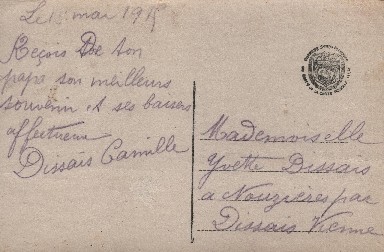 Le 18 mai 1915
Reçois De ton
papa son meilleurs
souvenir et ses baisers
affectueux
Dissais Camille
Mademoiselle
Yvette Dissais
a Nouzières par
Dissais Vienne